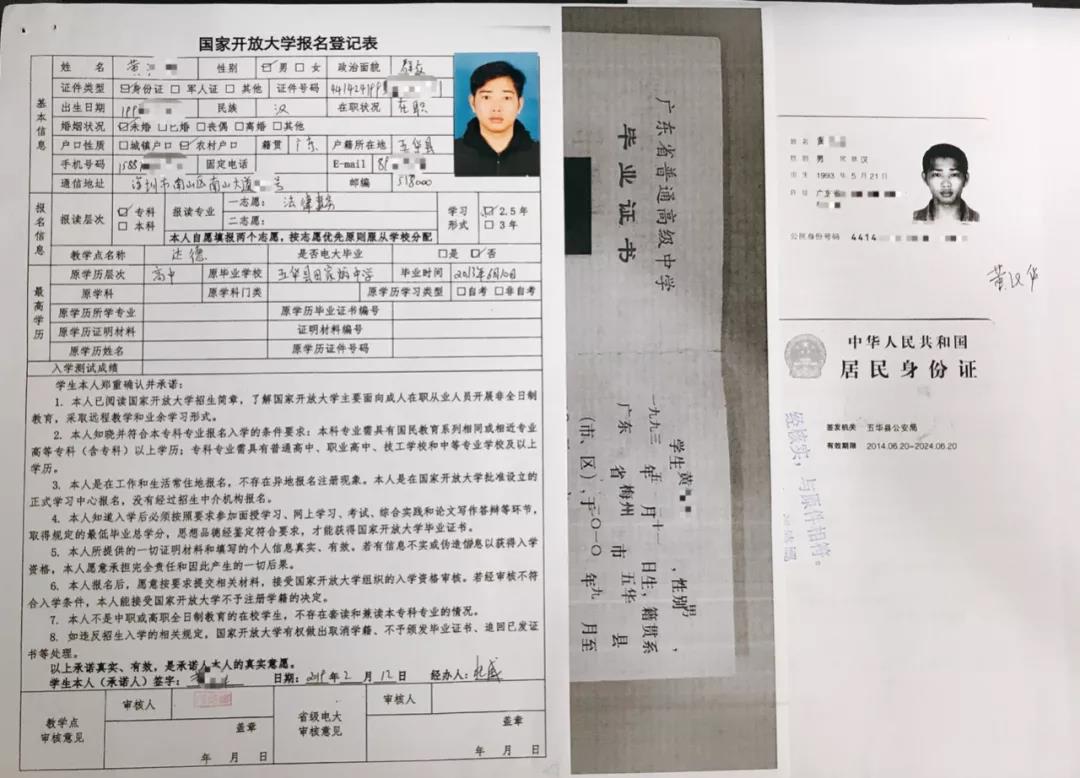 国家开放大学报名登记表
基本信息
姓 名 黄 性别 ☑男 □女 政治面貌 群众
证件类型 ☑身份证 □军人证 □其他 证件号码 441424199
出生日期 199 民族 汉 在职状况 在职
婚姻状况 ☑未婚 □已婚 □丧偶 □离婚 □其他
户口性质 □城镇户口 ☑农村户口 籍贯 广东 户籍所在地 五华县
手机号码 1588 固定电话 E-mail 89
通信地址 深圳市南山区南山大道 号 邮编 518000
报名信息
报读层次 ☑专科 □本科 报读专业 一志愿： 法律事务
二志愿：
学习形式 ☑2.5年 □3年
本人自愿填报两个志愿，按志愿优先原则服从学校分配
教学点名称 达德 是否电大毕业 □是 ☑否
最高学历
原学历层次 高中 原毕业学校 五华县田家炳中学 毕业时间 2013年6月10日
原学科 原学科门类 原学历学习类型 □自考 □非自考
原学历所学专业 原学历毕业证书编号
原学历证明材料 证明材料编号
原学历姓名 原学历证件号码
入学测试成绩
学生本人郑重确认并承诺：
1. 本人已阅读国家开放大学招生简章，了解国家开放大学主要面向成人在职从业人员开展非全日制
教育，采取远程教学和业余学习形式。
2. 本人知晓并符合本专科专业报名入学的条件要求：本科专业需具有国民教育系列相同或相近专业
高等专科（含专科）以上学历；专科专业需具有普通高中、职业高中、技工学校和中等专业学校及以上
学历。
3. 本人是在工作和生活常住地报名，不存在异地报名注册现象。本人是在国家开放大学批准设立的
正式学习中心报名，没有经过招生中介机构报名。
4. 本人知道入学后必须按照要求参加面授学习、网上学习、考试、综合实践和论文写作答辩等环节，
取得规定的最低毕业总学分，思想品德经鉴定符合要求，才能获得国家开放大学毕业证书。
5. 本人所提供的一切证明材料和填写的个人信息真实、有效。若有信息不实或伪造信息以获得入学
资格，本人愿意承担完全责任和因此产生的一切后果。
6. 本人报名后，愿意按要求提交相关材料，接受国家开放大学组织的入学资格审核。若经审核不符
合入学条件，本人能接受国家开放大学不予注册学籍的决定。
7. 本人不是中职或高职全日制教育的在校学生，不存在套读和兼读本专科专业的情况。
8. 如违反招生入学的相关规定，国家开放大学有权做出取消学籍、不予颁发毕业证书、追回已发证
书等处理。
以上承诺真实、有效，是承诺人本人的真实意愿。
学生本人（承诺人）签字： 日期：2019年2月12日 经办人：
教学点审核意见 审核人 盖章 年 月 日
省级电大审核意见 审核人 盖章 年 月 日
广东省普通高级中学
毕业证书
学生黄 ，性别男，
一九九三年五月二十一日生，籍贯系
广东省梅州市五华县
（市、区），于二〇一〇年九月至
姓名 黄
性别 男 民族 汉
出生 1993 年 5 月 21 日
住址 广东省
公民身份号码 4414
黄汉华
中华人民共和国
居民身份证
签发机关 五华县公安局
有效期限 2014.06.20-2024.06.20
经核实，与原件相符。